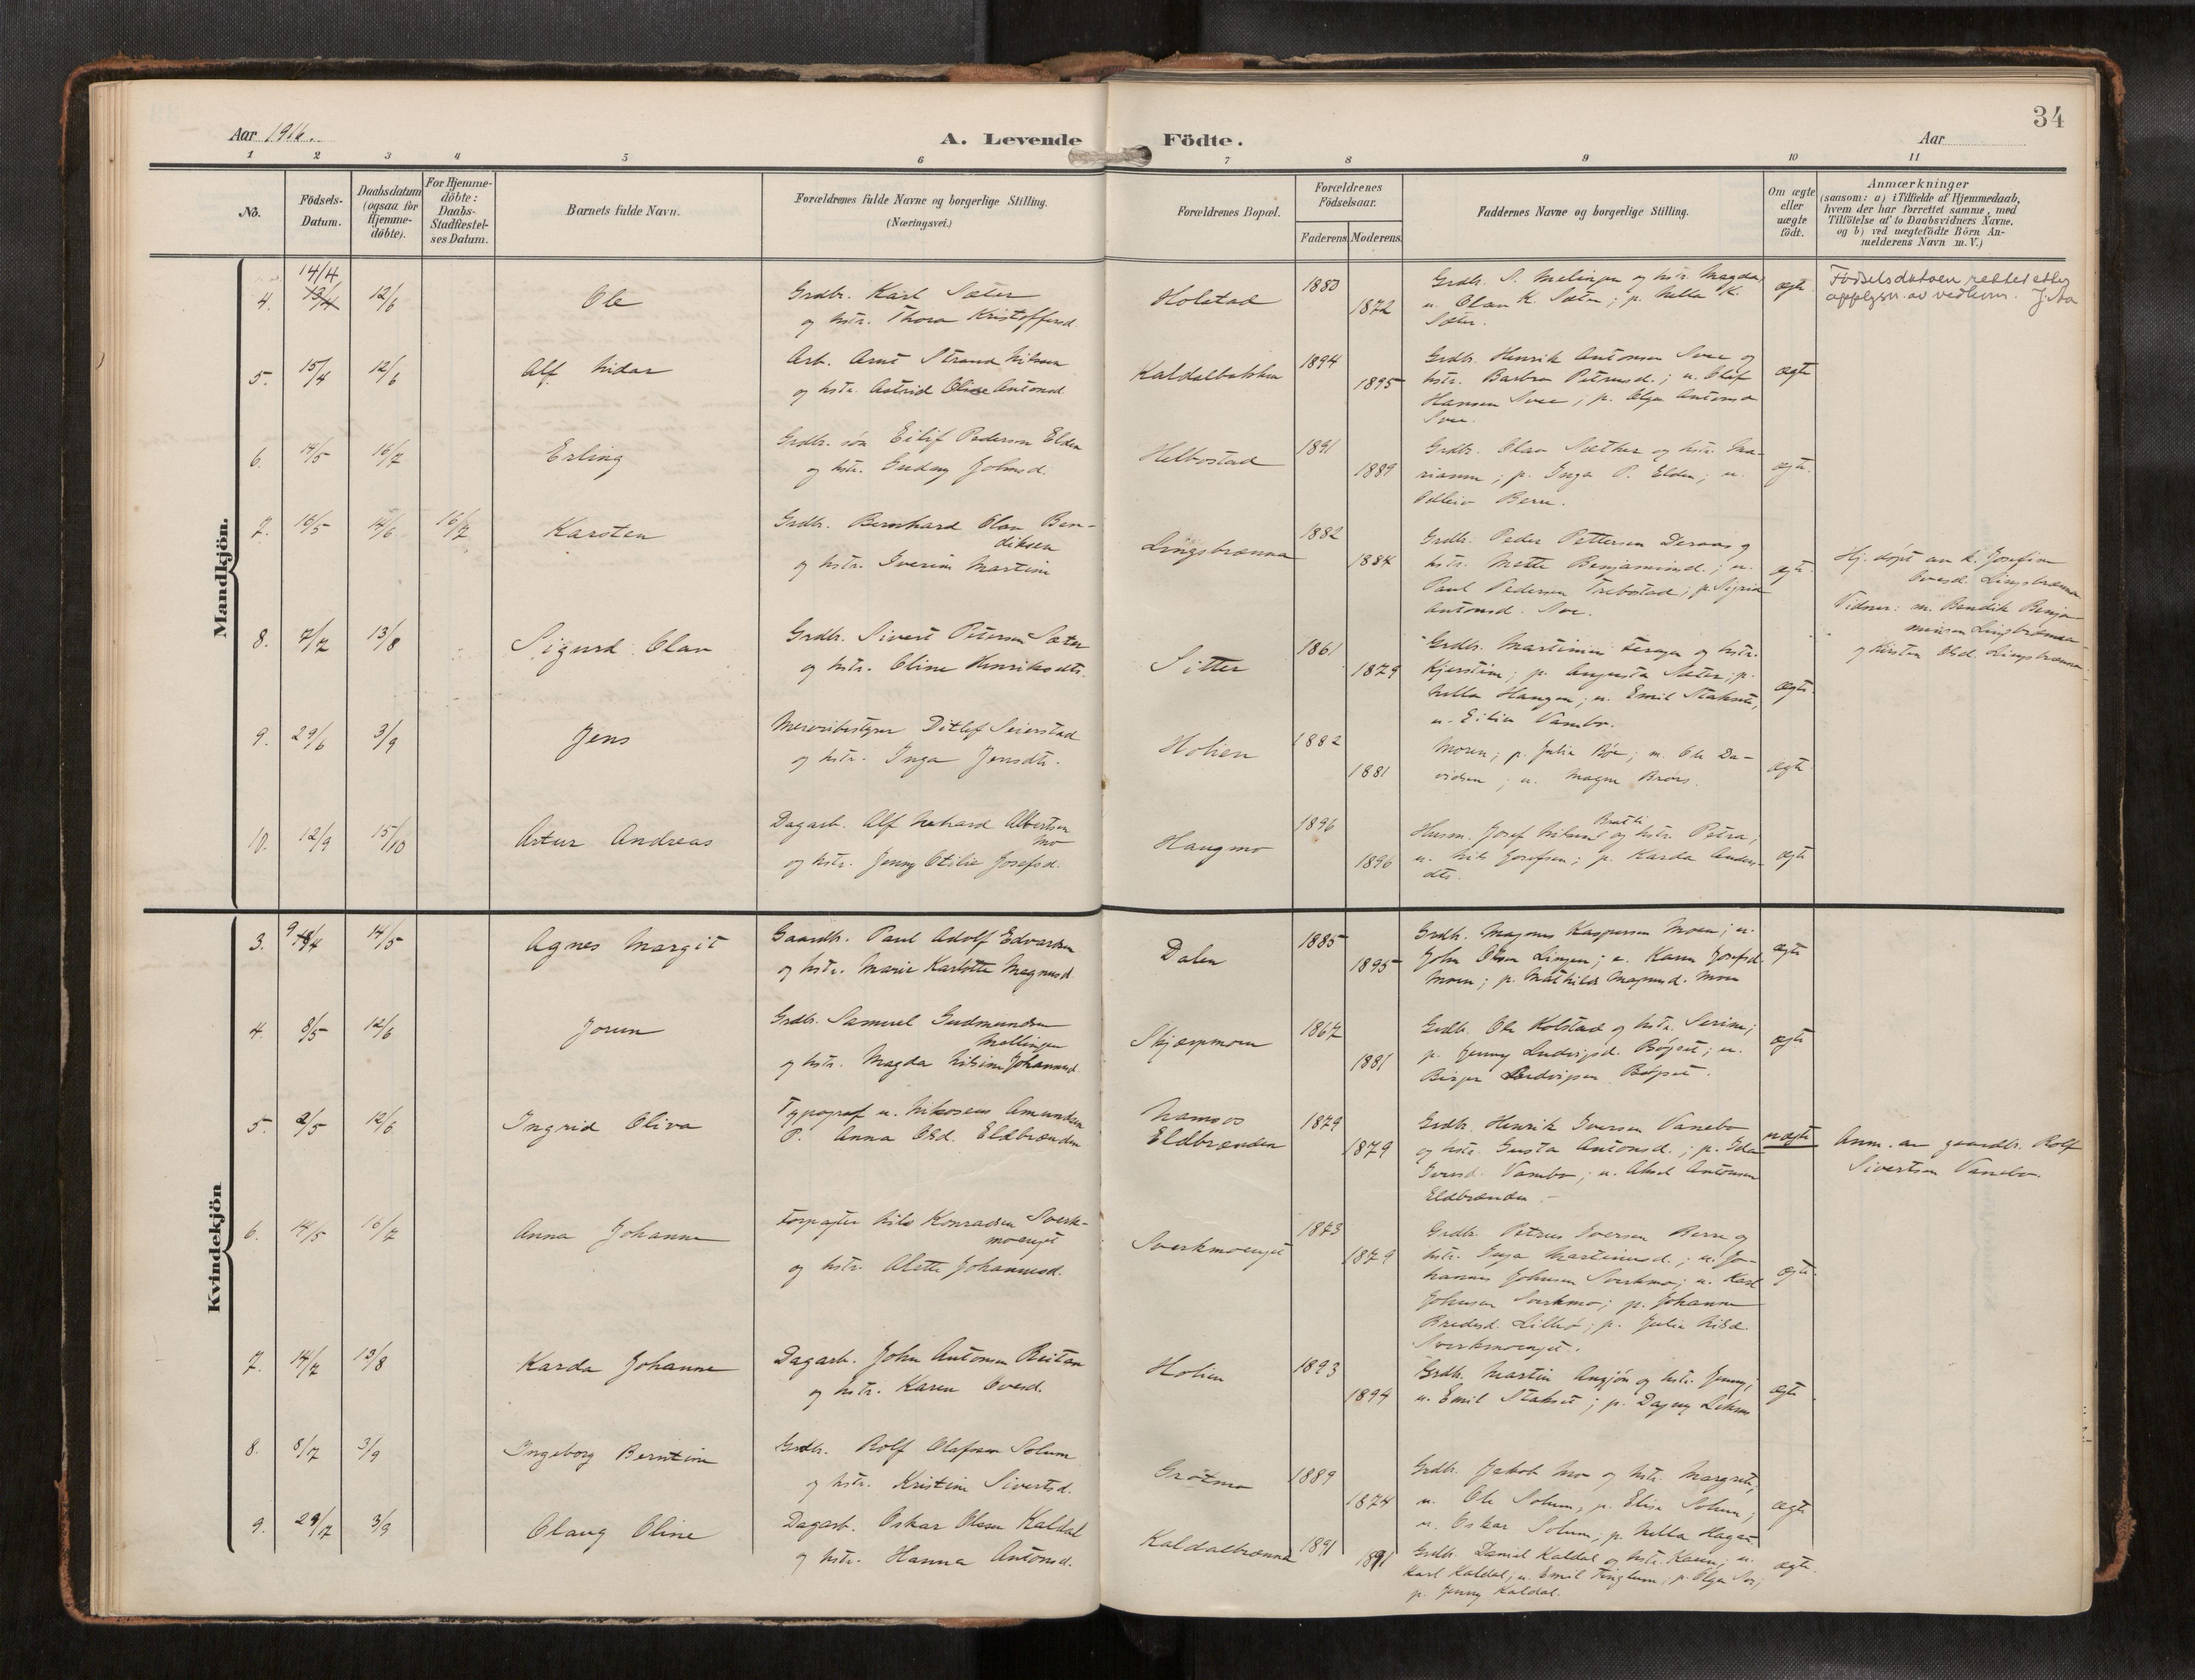 34
Aar 1916.
A. Levende Födte.
Aar
1 2 3 4 5 6 7 8 9 10 11
No.
Födsels-
Datum.
Daabsdatum
(ogsaa for
Hjemme-
döbte).
For Hjemme-
döbte:
Daabs-
Stadfæstel-
ses Datum.
Barnets fulde Navn.
Forældrenes fulde Navne og borgerlige Stilling.
(Næringsvei.)
Forældrenes Bopæl.
Forældrenes
Födselsaar.
Faderens Moderens
Faddernes Navne og borgerlige Stilling.
Om ægte
eller
uægte
födt.
Anmærkninger
(saasom: a) i Tilfælde af Hjemmedaab,
hvem der har forrettet samme, med
Tilföielse af to Daabsvidners Navne,
og b) ved uægtefödte Börn An-
melderens Navn m. V.)
Mandkjön.
14/4
4. 13/4 12/6 Ole
Grdbr. Karl Sæter
og hstr. Thora Kristoffersd.
Holstad
1880
1872
Grdb. S. Melingen og hstr. Magda,
u. Olav K. Sæter; p. Nella K.
Sæter.
ægte
Fødselsdatoen rettet etter
opplysn. av vedkom. J. Aa
5. 15/4 12/6 Alf Nidar
Arb. Arnt Strand Nilssen
og hstr. Astrid Oline Antonsd.
Kaldalbakken
1894
1895
Grdb. Henrik Antonsen Svee og
hstr. Barbro Petrusd.; u. Olaf
Hansen Svee; p. Olga Antonsd
Svee.
ægte
6. 14/5 16/7 Erling
Grdbr. søn Eilif Pedersen Elden
og hstr. Gudny Johnsd.
Helbostad
1891
1889
Grdb. Olav Sæther og hstr. Ma-
rianne; p. Inga P. Elden; u.
Berre.
ægte.
7. 13/5 14/6 16/7 Karsten
Grdb. Bernhard Olav Ben-
diksen
og hstr. Iverine Martine
Lingsbrænna
1882
1884
Grdb. Peder Pettersen Deraas og
hstr. Mette Benjaminsd.; u.
Paul Pedersen Trebostad; p. Sigrid
Antonsd.
ægte.
Hj. døpt av k. Josefine
Ovesd. Lingsbrænna
Vidner: m. Bendik Benja
minsen Lingsbrænna
og Kirsten Olsd. Lingsbrænna.
8. 7/7 13/8 Sigurd Olav
Grdb. Sivert Petersen Sæter
og hstr. Oline Henriksdtr.
Sitter
1861
1879
Grdb. Martinus og hstr.
Kjerstine; p. Augusta Sæter; p.
Nella Haugen; u. Emil
u. Vanebo.
ægte.
9. 29/6 3/9 Jens
Meieribestyrer Ditlef Seierstad
og hstr. Inga Jensdtr.
Holien
1882
1881
Moren; p. Julia Bøe; m. Ole Da-
vidsen; u. Magne Brørs.
ægte
10. 12/9 15/10 Artur Andreas
Dagarb. Alf Albertsen
Mo
og hstr. Jenny Otilie Josefsd.
Haugmo
1896
1896
Bratli
Husm. Josef Nilsens og hstr. Petra;
u. Nils Josefsen; p. Karda Anders-
dtr.
ægte
Kvindekjön
3. 9/4 14/5 Agnes Margit
Gaardb. Paul Adolf Edvardsen
og hstr. Marie Karlotte Magnusd.
Dalen
1885
1895
Grdb. Magnus Kaspersen Moen; u.
John Olsen Lingen; u. Karen Josefsd.
Moen; p. Mathilde Magnusd. Moen
ægte
4. 8/5 12/6 Jorun
Grdb. Samuel Gudmundsen
Mellingen
og hstr. Magda Nikoline Johannesd.
Skjærpmoen
1867
1881
Grdb. Ole Kolstad og hstr. Serine;
p. Jenny Ludvigsd. Bøgset; u.
Birger Ludvigsen Bøgset.
ægte
5. 2/5 12/6 Ingrid Oliva
Typograf u. Amundsen
P. Anna Olsd. Eldbrænden
Namsos
Eldbrænden
1879
1879
Grdb. Henrik Iversen Vanebo
og hstr. Gusta Antonsd.; p. Ida
Iversd. Vanebo; u. Aksel Antonsen
Eldbrænden.
uægte
Anm. av gaardbr. Rolf
Sivertsen Vanebo.
6. 14/5 16/7 Anna Johanne
Forpagter Nils Konradsen Sverk-
moenget
og hstr. Alette Johannesd.
Sverkmoenget
1873
1879
Grdb. Petrus Iversen Berre og
hstr. Gusta Martinusd.; u. Jo-
hannes Johnsen Sverkmo; u. Karl
Johnsen Sverkmo; p. Johanne
Bredesd. Lillø; p. Julie Nilsd.
Sverkmoenget.
ægte.
7. 14/7 13/8 Karda Johanne
Dagarb. John Antonsen Reitan
og hstr. Karen Ovesd.
Holien
1893
1894
Grdb. Martin og hstr. Jenny;
u. Emil; p. Dagny
ægte
8. 8/7 3/9 Ingeborg Berntine
Grdb. Rolf Olafsen Solum
og hstr. Kristine Sivertsd.
Grøtmo
1889
1874
Grdb. Jakob Mo og hstr. Margrete,
u. Ole Solum, p. Elise Solum;
u. Oskar Solum; p. Nella Hagen
ægte
9. 29/7 3/9 Olaug Oline
Dagarb. Oskar Olsen Kaldal
og hstr. Hanna Antonsd.
Kaldalbrænna
1891
1891
Grdb. Daniel Kaldal og hstr. Karen; u.
Karl Kaldal; u. Emil Tinglum; p. Olga
p. Jenny Kaldal.
ægte.